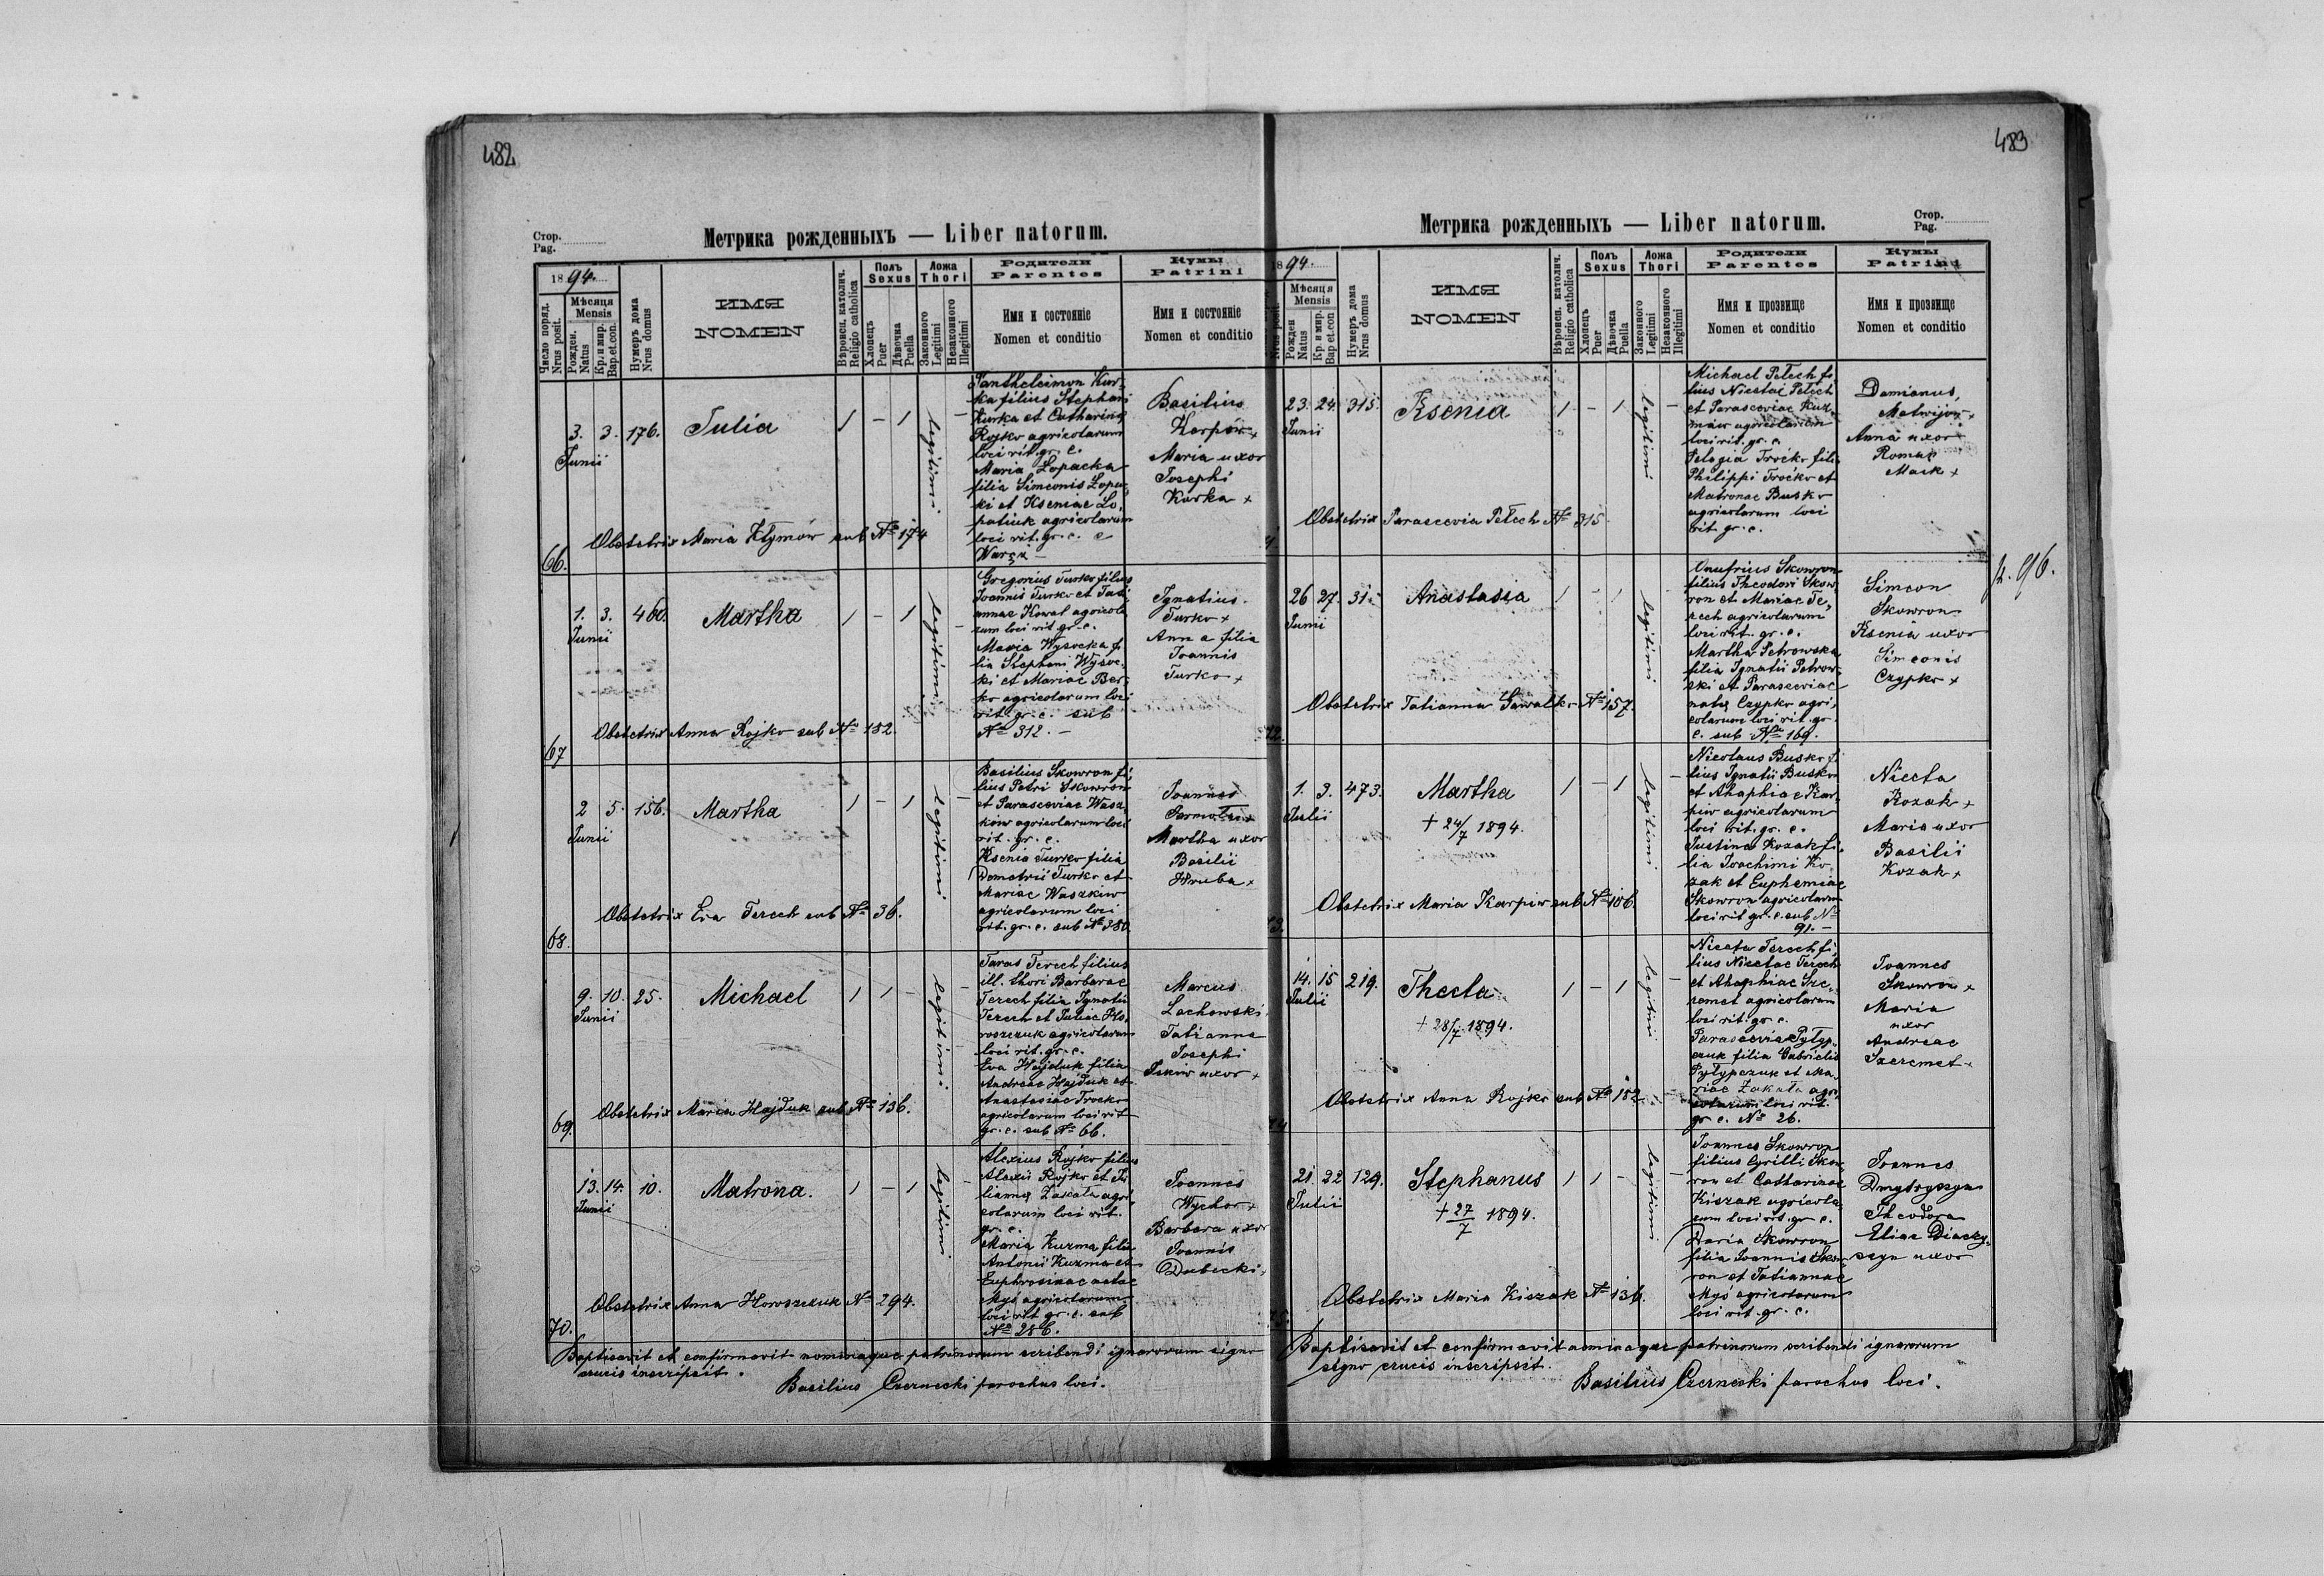 482
Стор.
Pag.
Метрика рожденныхъ — Liber natorum.
1894.
Число поряд.
Nrus posit.
Мѣсяця
Mensis
Рожден.
Natus
Кр. и мир.
Bap. et. con.
Нумеръ дома
Nrus domus
ИМЯ
NOMEN
Вѣроисп. католич.
Religio catholica
Полъ
Sexus
Хлопецъ
Puer
Дѣвочка
Puella
Ложа
Thori
Законного
Legitimi
Незаконного
Illegitimi
Родители
Parentes
Имя и состояніе
Nomen et conditio
Кумы
Patrini
Имя и состояніе
Nomen et conditio
66.
3. 3. 176. Julia 1 - 1 legitimi -
Junii
Pantheleimon Kur-
ka filius Stephani
Kurka et Catharinae
Rojko agricolarum
loci rit. gr. c.
Maria Lopacka
filia Simeonis Lopac-
ki et Kseniae Lo-
patiuk agricolarum
loci rit. gr. c.
Basilius
Karpow +
Maria uxor
Josephi
Kurka +
Obstetrix Maria Klymów sub № 174
67
1. 3. 460. Martha 1 - 1 legitimi -
Junii
Gregorius Turko filius
Joannis Turko et Tati-
annae Kowal agricola-
rum loci rit. gr. c.
Maria Wysocka fi-
lia Stephani Wysoc-
ki et Mariae Ber-
ko agricolarum loci
rit. gr. c. sub
№ 312. -
Ignatius
Turko +
Anna filia
Joannis
Turko +
Obstetrix Anna Rojko sub № 182.
68.
2 5. 156. Martha 1 - 1 legitimi -
Junii
Basilius Skowron fi-
lius Petri Skowron
et Parasceviae Wasz-
kiw agricolarum loci
rit. gr. c.
Ksenia Turko filia
Demetrii Turko et
Mariae Waszkiw
agricolarum loci
rit. gr. c. sub № 380.
Joannes
Martha uxor
Basilii
Hruba +
Obstetrix Eva Terech sub № 36.
69.
9. 10. 25. Michael 1 1 - legitimi -
Junii
Taras Terech filius
ill. thori Barbarae
Terech filia Ignatii
Terech et Juliae Ho-
roszczuk agricolarum
loci rit. gr. c.
Eva Hajduk filia
Andreae Hajduk et
Anastasiae Trocko
agricolarum loci rit
gr. c. sub № 66.
Marcus
Lachowski
Tatianna
Josephi
uxor +
Obstetrix Maria Hajduk sub № 136.
70.
13. 14. 10. Matrona. 1 - 1 legitimi -
Junii
Alexius Rojko filius
Alexii Rojko et Ju-
liannae Zakala agri-
colarum loci rit.
gr. c.
Maria Kuzma filia
Antonii Kuzma et
Euphrosinae natae
Myś agricolarum
loci rit gr. c. sub
№ 286.
Joannes
Wychor +
Barbara uxor
Joannis
Dubecki +
Obstetrix Anna Horoszczuk № 294.
Baptisavit et confirmavit nominaque patrinorum scribendi ignarorum signo
crucis inscripsit.
Basilius Czernecki parochus loci.
483
Стор.
Pag.
Метрика рожденныхъ — Liber natorum.
1894.
Nrus posit.
Мѣсяця
Mensis
Рожден
Natus
Кр. и мир.
Bap et. con
Нумеръ дома
Nrus domus
ИМЯ
NOMEN
Вѣроисп. католич.
Religio catholica
Полъ
Sexus
Хлопецъ
Puer
Дѣвочка
Puella
Ложа
Thori
Законного
Legitimi
Незаконного
Illegitimi
Родители
Parentes
Имя и прозвище
Nomen et conditio
Кумы
Patrini
Имя и прозвище
Nomen et conditio
23. 24. 315. Ksenia 1 - 1 legitimi -
Junii
Michael Petech fi-
lius Nicetae Petech
et Parasceviae Kuz-
miw agricolarum
loci rit. gr. c.
Pelagia Troćko filia
Philippi Troćko et
Matronae Busko
agricolarum loci
rit. gr. c.
Damianus
Matwijow +
Anna uxor
Romae
Maik +
Obstetrix Parascevia Petech № 315
26 27. 31 Anastasia 1 - 1 legitimi -
Junii
Onufrius Skowron
filius Theodori Skow-
ron et Mariae Te-
rech agricolarum
loci rit. gr. c.
Martha Petrowska
filia Ignatii Petrow-
ski et Parasceviae
natae Czypko agri-
colarum loci rit. gr.
c. sub № 169.
Simeon
Skowron
Ksenia uxor
Simeonis
Czypko +
p. 96.
Obstetrix Tatianna Gawalko № 157.
1. 3. 473. Martha 1 - 1 legitimi -
Julii
+ 24/7 1894.
Nicolaus Busko fi-
lius Ignatii Busko
et Ahaphiae Kar-
piw agricolarum
loci rit. gr. c.
Justina Kozak fi-
lia Joachimi Ko-
zak et Euphemiae
Skowron agricolarum
loci rit gr. c. sub №
91. -
Niceta
Kozak +
Maria uxor
Basilii
Kozak +
Obstetrix Maria Karpiw sub № 186.
14. 15 219. Thecla 1 - 1 legitimi -
Julii
+ 28/7 1894.
Niceta Terech fi-
lius Nicetae Terech
et Ahaphiae Sze-
remet agricolarum
loci rit. gr. c.
Parascevia Pylyp-
czuk filia Gabrielis
Pylypczuk et Ma-
riae Zakala agri-
colarum loci rit.
gr c. № 26.
Joannes
Skowron +
Maria
uxor
Andreae
Szeremet +
Obstetrix Anna Rojko sub № 182
21. 22 129. Stephanus 1 1 - legitimi -
Julii
+ 27/7 1894.
Joannes Skowron
filius Cyrilli Skow-
ron et Catharinae
Kiszak agricola-
rum loci rit. gr c.
Daria Skowron
filia Joannis Skow-
ron et Tatiannae
Myś agricolarum
loci rit. gr. c.
Joannes
Dmytryszyn
Theodora
Eliae Diaczy-
szyn uxor
Obstetrix Maria Kiszak № 136.
Baptisavit et confirmavit nominaque patrinorum scribendi ignarorum
signo crucis inscripsit.
Basilius Czernecki parochus loci.